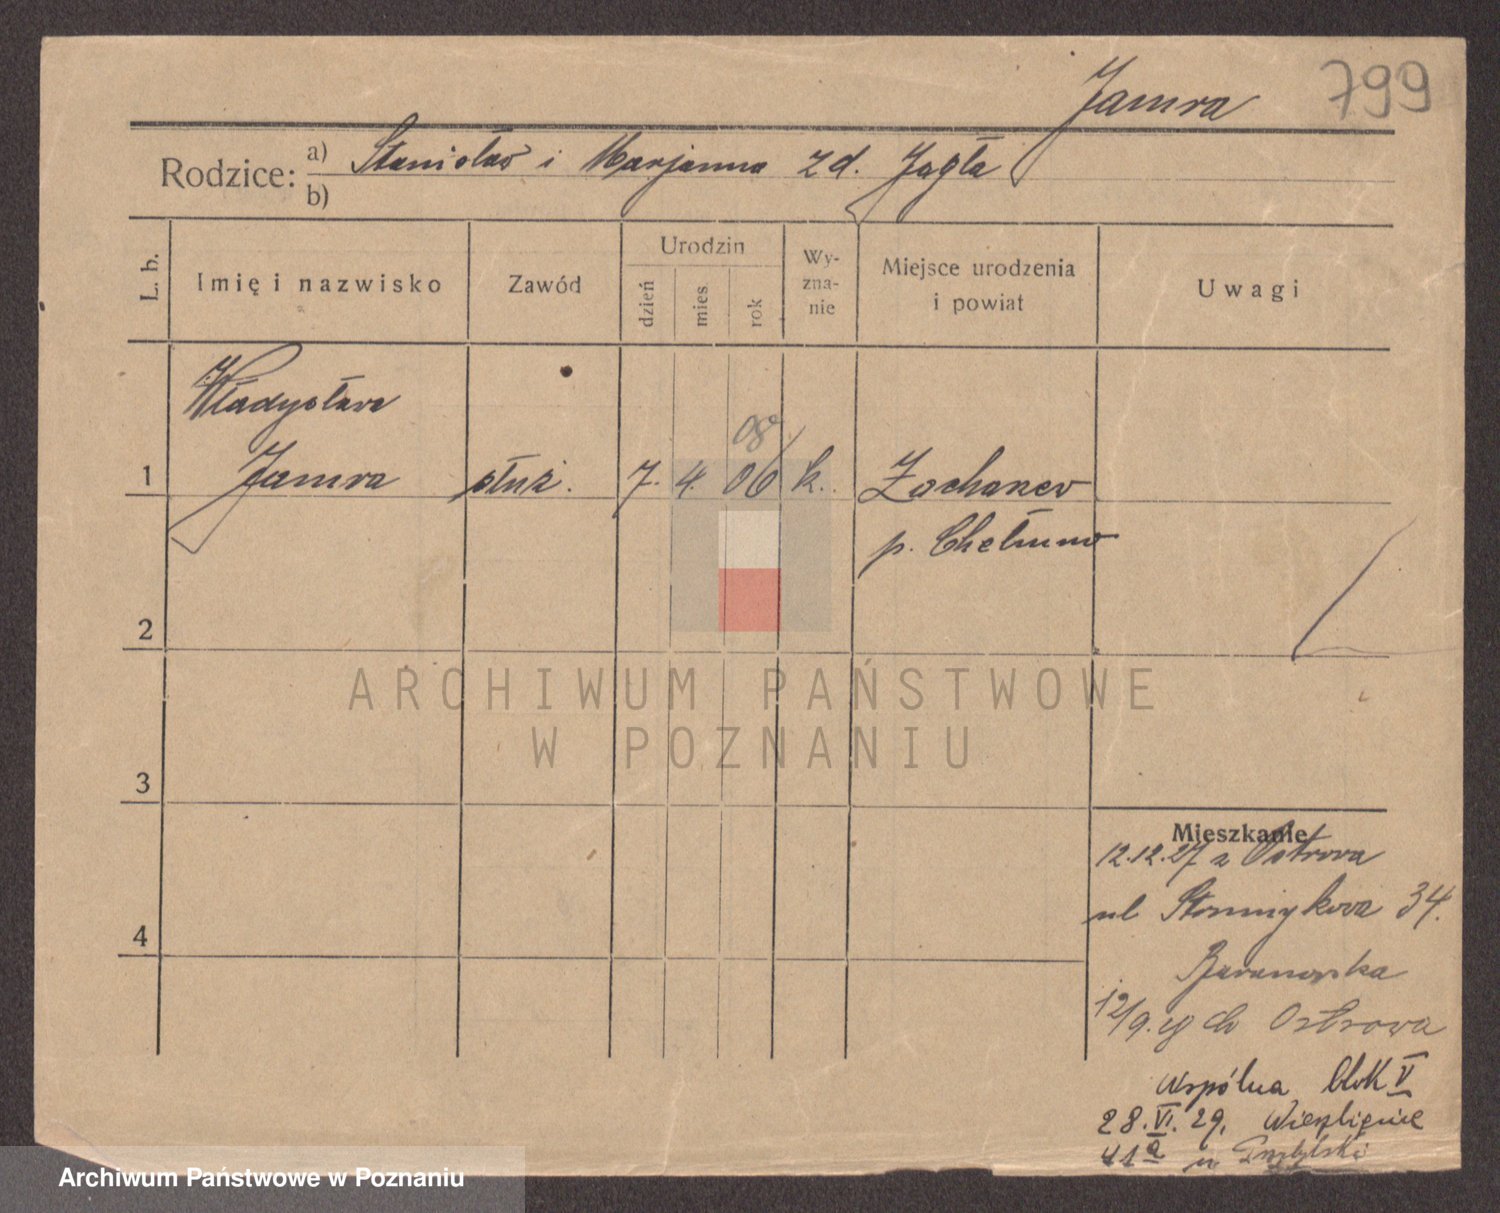 Jamra 799
Rodzice: a) Stanisław i Marjanna z d. Jagła
b)
L. b. Imię i nazwisko Zawód Urodzin dzień mies rok Wyznanie Miejsce urodzenia i powiat Uwagi
Władysława
08
1 Jamra służ. 7. 4. 06 k.
p. Chełmno
2
ARCHIWUM PAŃSTWOWE
W POZNANIU
3
Mieszkanie
12.12.27 z Ostrowa
ul 34.
4
Baranowska
12/9. do Ostrowa
Wspólna blok V
28.VI.29. Wierzbięcice
41a u
Archiwum Państwowe w Poznaniu